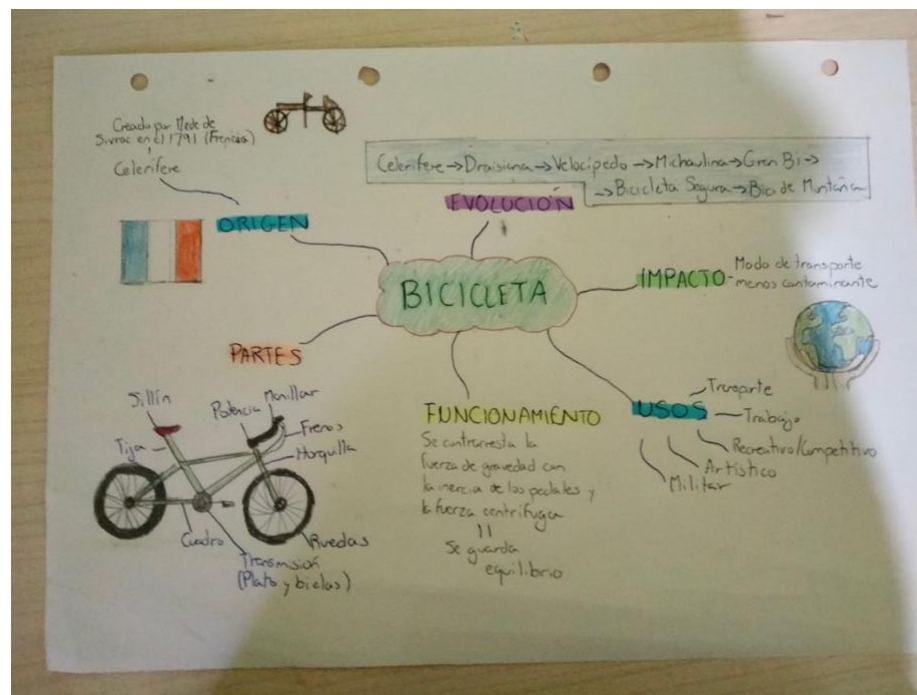 Creado por Mede de
Sivrac en el 1791 (Francia)
Celerífere
ORIGEN
Celerífere → Draisiana → Velocípedo → Michaulina → Gran Bi →
→ Bicicleta Segura → Bici de Montaña
EVOLUCIÓN
BICICLETA
IMPACTO - Modo de transporte
menos contaminante
PARTES
Sillín
Tija
Potencia
Manillar
Frenos
Horquilla
Cuadro
Ruedas
Transmisión
(Plato y bielas)
FUNCIONAMIENTO
Se contrarresta la
fuerza de gravedad con
la inercia de los pedales y
la fuerza centrífuga
Se guarda
equilibrio
USOS
Transporte
Trabajo
Recreativo/Competitivo
Artístico
Militar